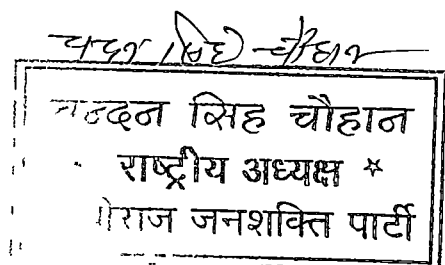 चन्दन सिंह चौहान
चन्दन सिंह चौहान
राष्ट्रीय अध्यक्ष *
जनशक्ति पार्टी